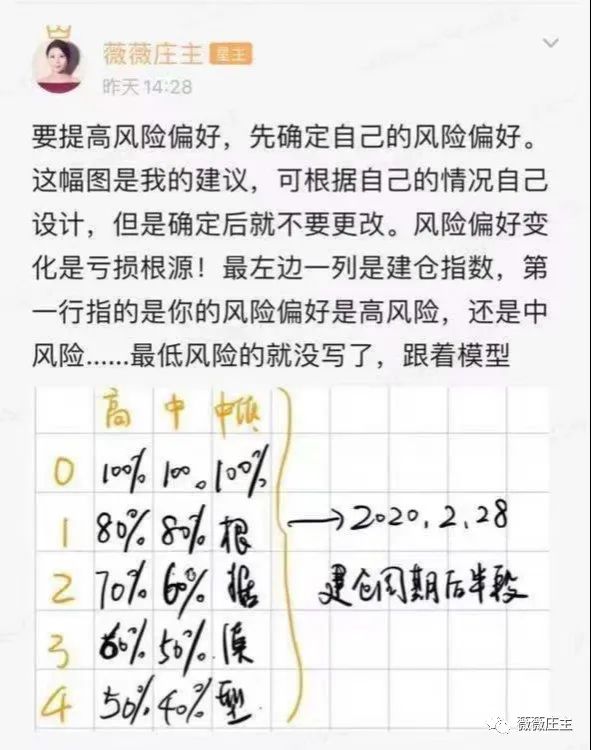 薇薇庄主 星主
昨天14:28
要提高风险偏好，先确定自己的风险偏好。
这幅图是我的建议，可根据自己的情况自己
设计，但是确定后就不要更改。风险偏好变
化是亏损根源！最左边一列是建仓指数，第
一行指的是你的风险偏好是高风险，还是中
风险......最低风险的就没写了，跟着模型
高 中 中低
0 100% 100% 100%
1 80% 80% 根
2 70% 60% 据
3 60% 50% 模
4 50% 40% 型
→2020.2.28
建仓周期后半段
薇薇庄主